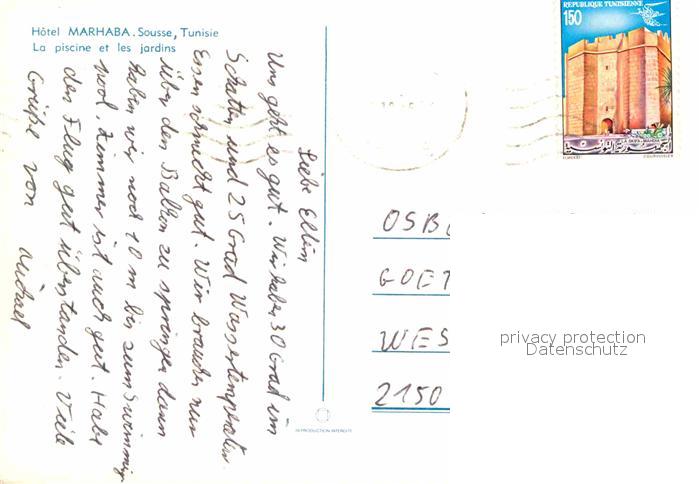 Hôtel MARHABA. Sousse, Tunisie
La piscine et les jardins
Liebe Eltern
Uns geht es gut. Wir haben 30 Grad im
Schatten und 25 Grad Wassertemperatur.
Essen schmeckt gut. Wir brauchen nur
über den Balkon zu springen dann
haben wir noch 10 m bis zum Swimming-
pool. Zimmer ist auch gut. Habe
den Flug gut überstanden. Viele
Grüße von Michael
REPUBLIQUE TUNISIENNE
150
الجمهورية التونسية
OSB
GOET
WES
2150
privacy protection
Datenschutz
REPRODUCTION INTERDITE